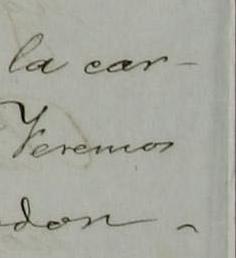 la car-
Veremos
don -